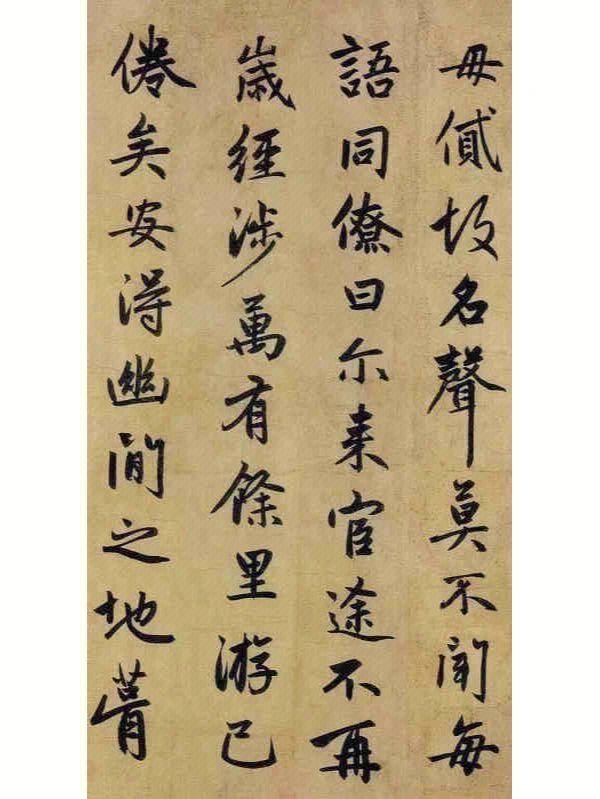 毋貳故名聲莫不聞每
語同僚曰尓来宦途不再
歲經涉萬有餘里游已
倦矣安得幽閒之地